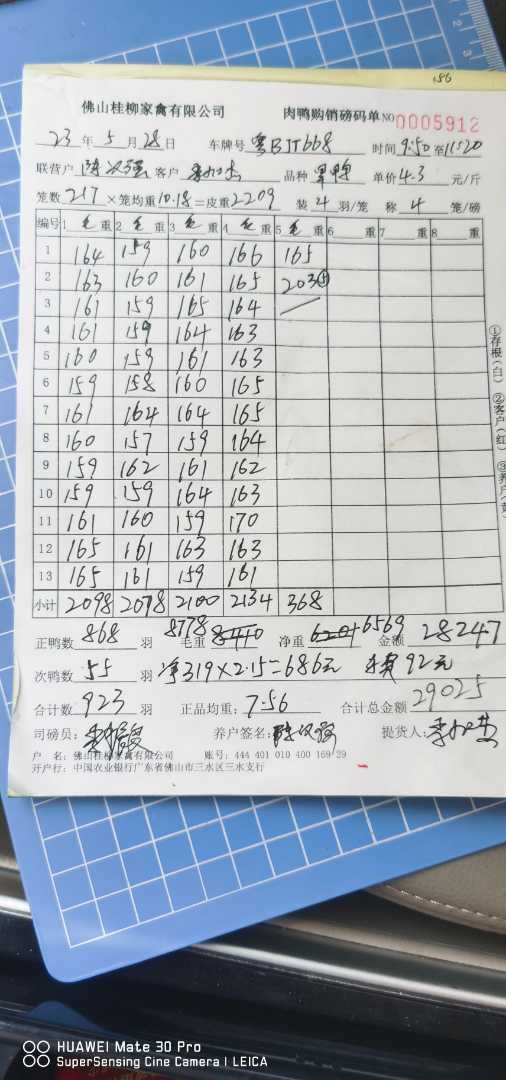 156
佛山桂柳家禽有限公司 肉鸭购销磅码单 NO 0005912
23 年 5 月 28 日 车牌号 粤BJT668 时间 9:50 至 11:20
联营户 客户 品种 单价 4.3 元/斤
笼数 217 × 笼均重 10.18 = 皮重 2209 装 4 羽/笼 称 4 笼/磅
编号 1 毛 重 2 毛 重 3 毛 重 4 毛 重 5 毛 重 6 重 7 重 8 重
1 164 159 160 166 165
2 163 160 161 165 203 ⑤
3 161 159 165 164
4 161 159 164 163
5 160 159 161 163
6 159 158 160 165
7 161 164 164 165
8 160 157 159 164
9 159 162 161 162
10 159 159 164 163
11 161 160 159 170
12 165 161 163 163
13 165 161 159 161
小计 2098 2078 2100 2134 368
正鸭数 868 羽 8778 毛重 净重 6569 金额 28247
次鸭数 55 羽 净319×2.15=686元 92元
合计数 923 羽 正品均重: 7.56 合计总金额 29025
司磅员: 养户签名: 提货人:
户 名: 佛山桂柳家禽有限公司 账号: 444 401 010 400 169 29
开户行: 中国农业银行广东省佛山市三水区三水支行
①存根(白) ②客户(红) ③养户(黄)
HUAWEI Mate 30 Pro
SuperSensing Cine Camera | LEICA